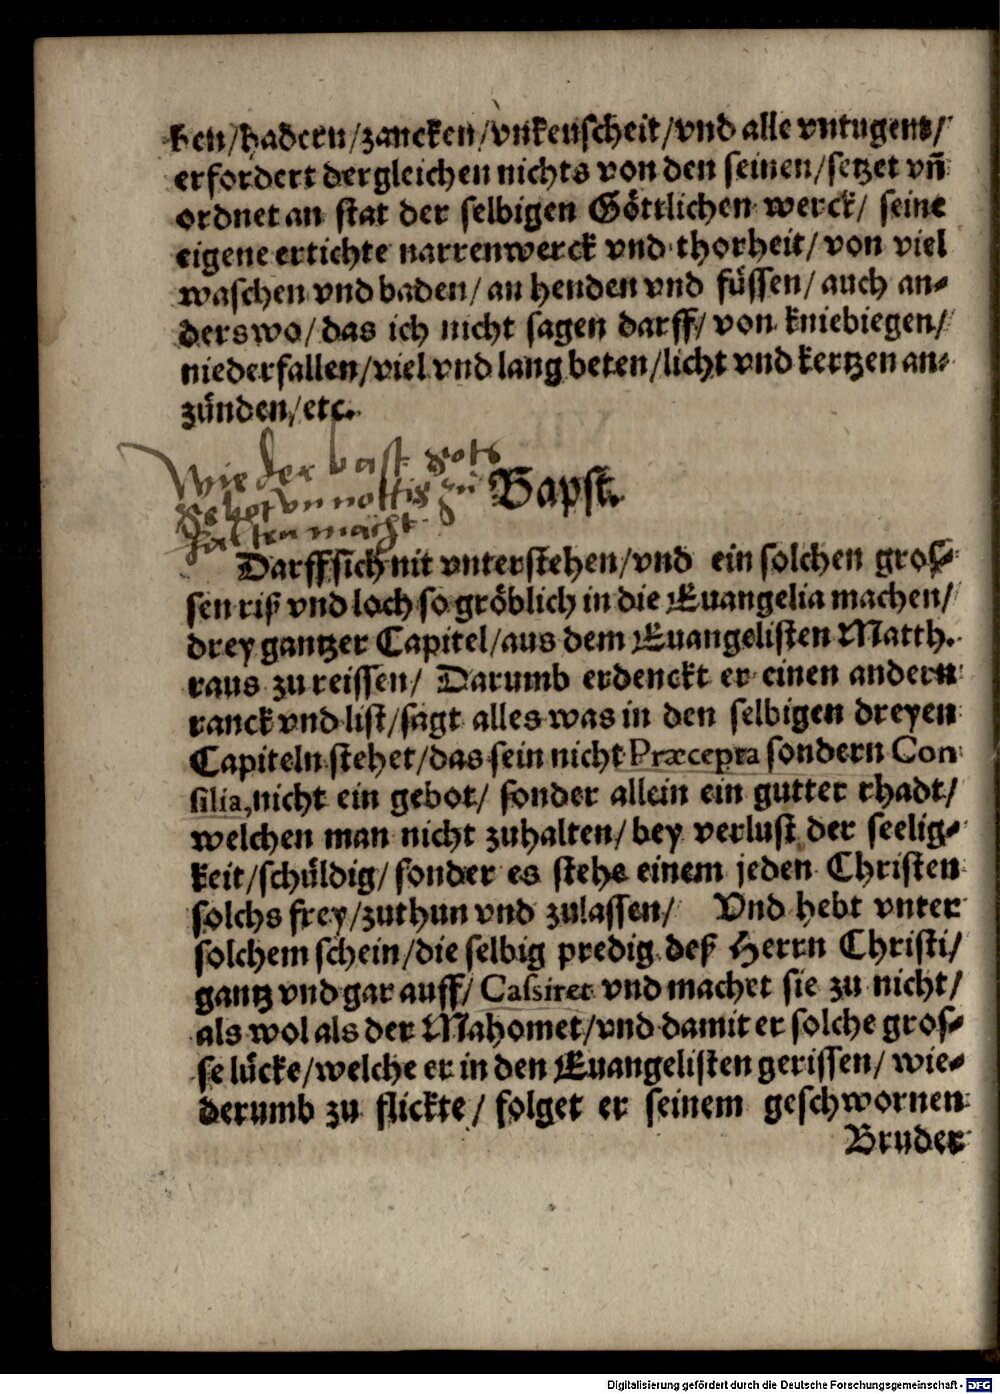 ben/hadern/zancken/vnkenscheit/vnd alle vntugent/
erfordert dergleichen nichts von den seinen/setzet vñ
ordnet an stat der selbigen Göttlichen werck/ seine
eigene ertichte narrenwerck vnd thorheit/ von viel
waschen vnd baden/ an henden vnd füssen/ auch an-
derswo/ das ich nicht sagen darff/ von kniebiegen/
niederfallen/viel vnd lang beten/licht vnd kertzen an-
zünden/etc.
Wie der bast gots
gebot vnnottig zu
halten macht
Bapst.
Darff sich nit vnterstehen/vnd ein solchen gros-
sen riß vnd loch so gröblich in die Euangelia machen/
drey gantzer Capitel/aus dem Euangelisten Matth.
raus zu reissen/ Darumb erdenckt er einen andern
ranck vnd list/sagt alles was in den selbigen dreyen
Capiteln stehet/das sein nicht Præcepta sondern Con
silia, nicht ein gebot/ sonder allein ein gutter rhadt/
welchen man nicht zuhalten/ bey verlust der seelig-
keit/schüldig/ sonder es stehe einem jeden Christen
solchs frey/zuthun vnd zulassen/ Vnd hebt vnter
solchem schein/die selbig predig deß Herrn Christi/
gantz vnd gar auff/ Cassiret vnd machet sie zu nicht/
als wol als der Mahomet/vnd damit er solche gros-
se lücke/welche er in den Euangelisten gerissen/ wie-
derumb zu flickte/ folget er seinem geschwornen
Bruder
Digitalisierung gefördert durch die Deutsche Forschungsgemeinschaft - DFG